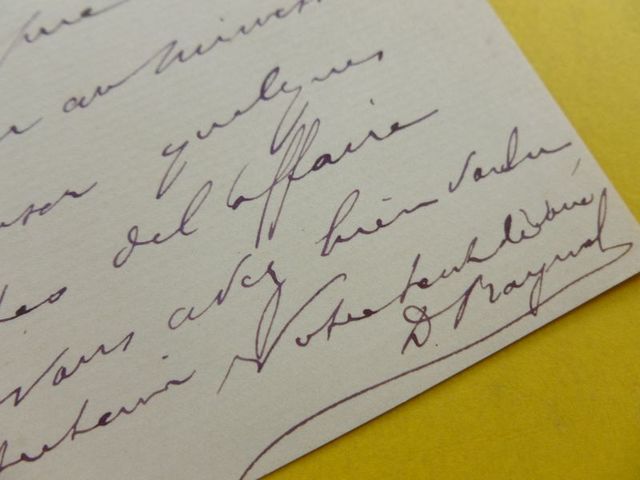 que
au minist
quelques
del'affaire
Vous avez bien voulu
Votre tout dévoué
D. Raynal